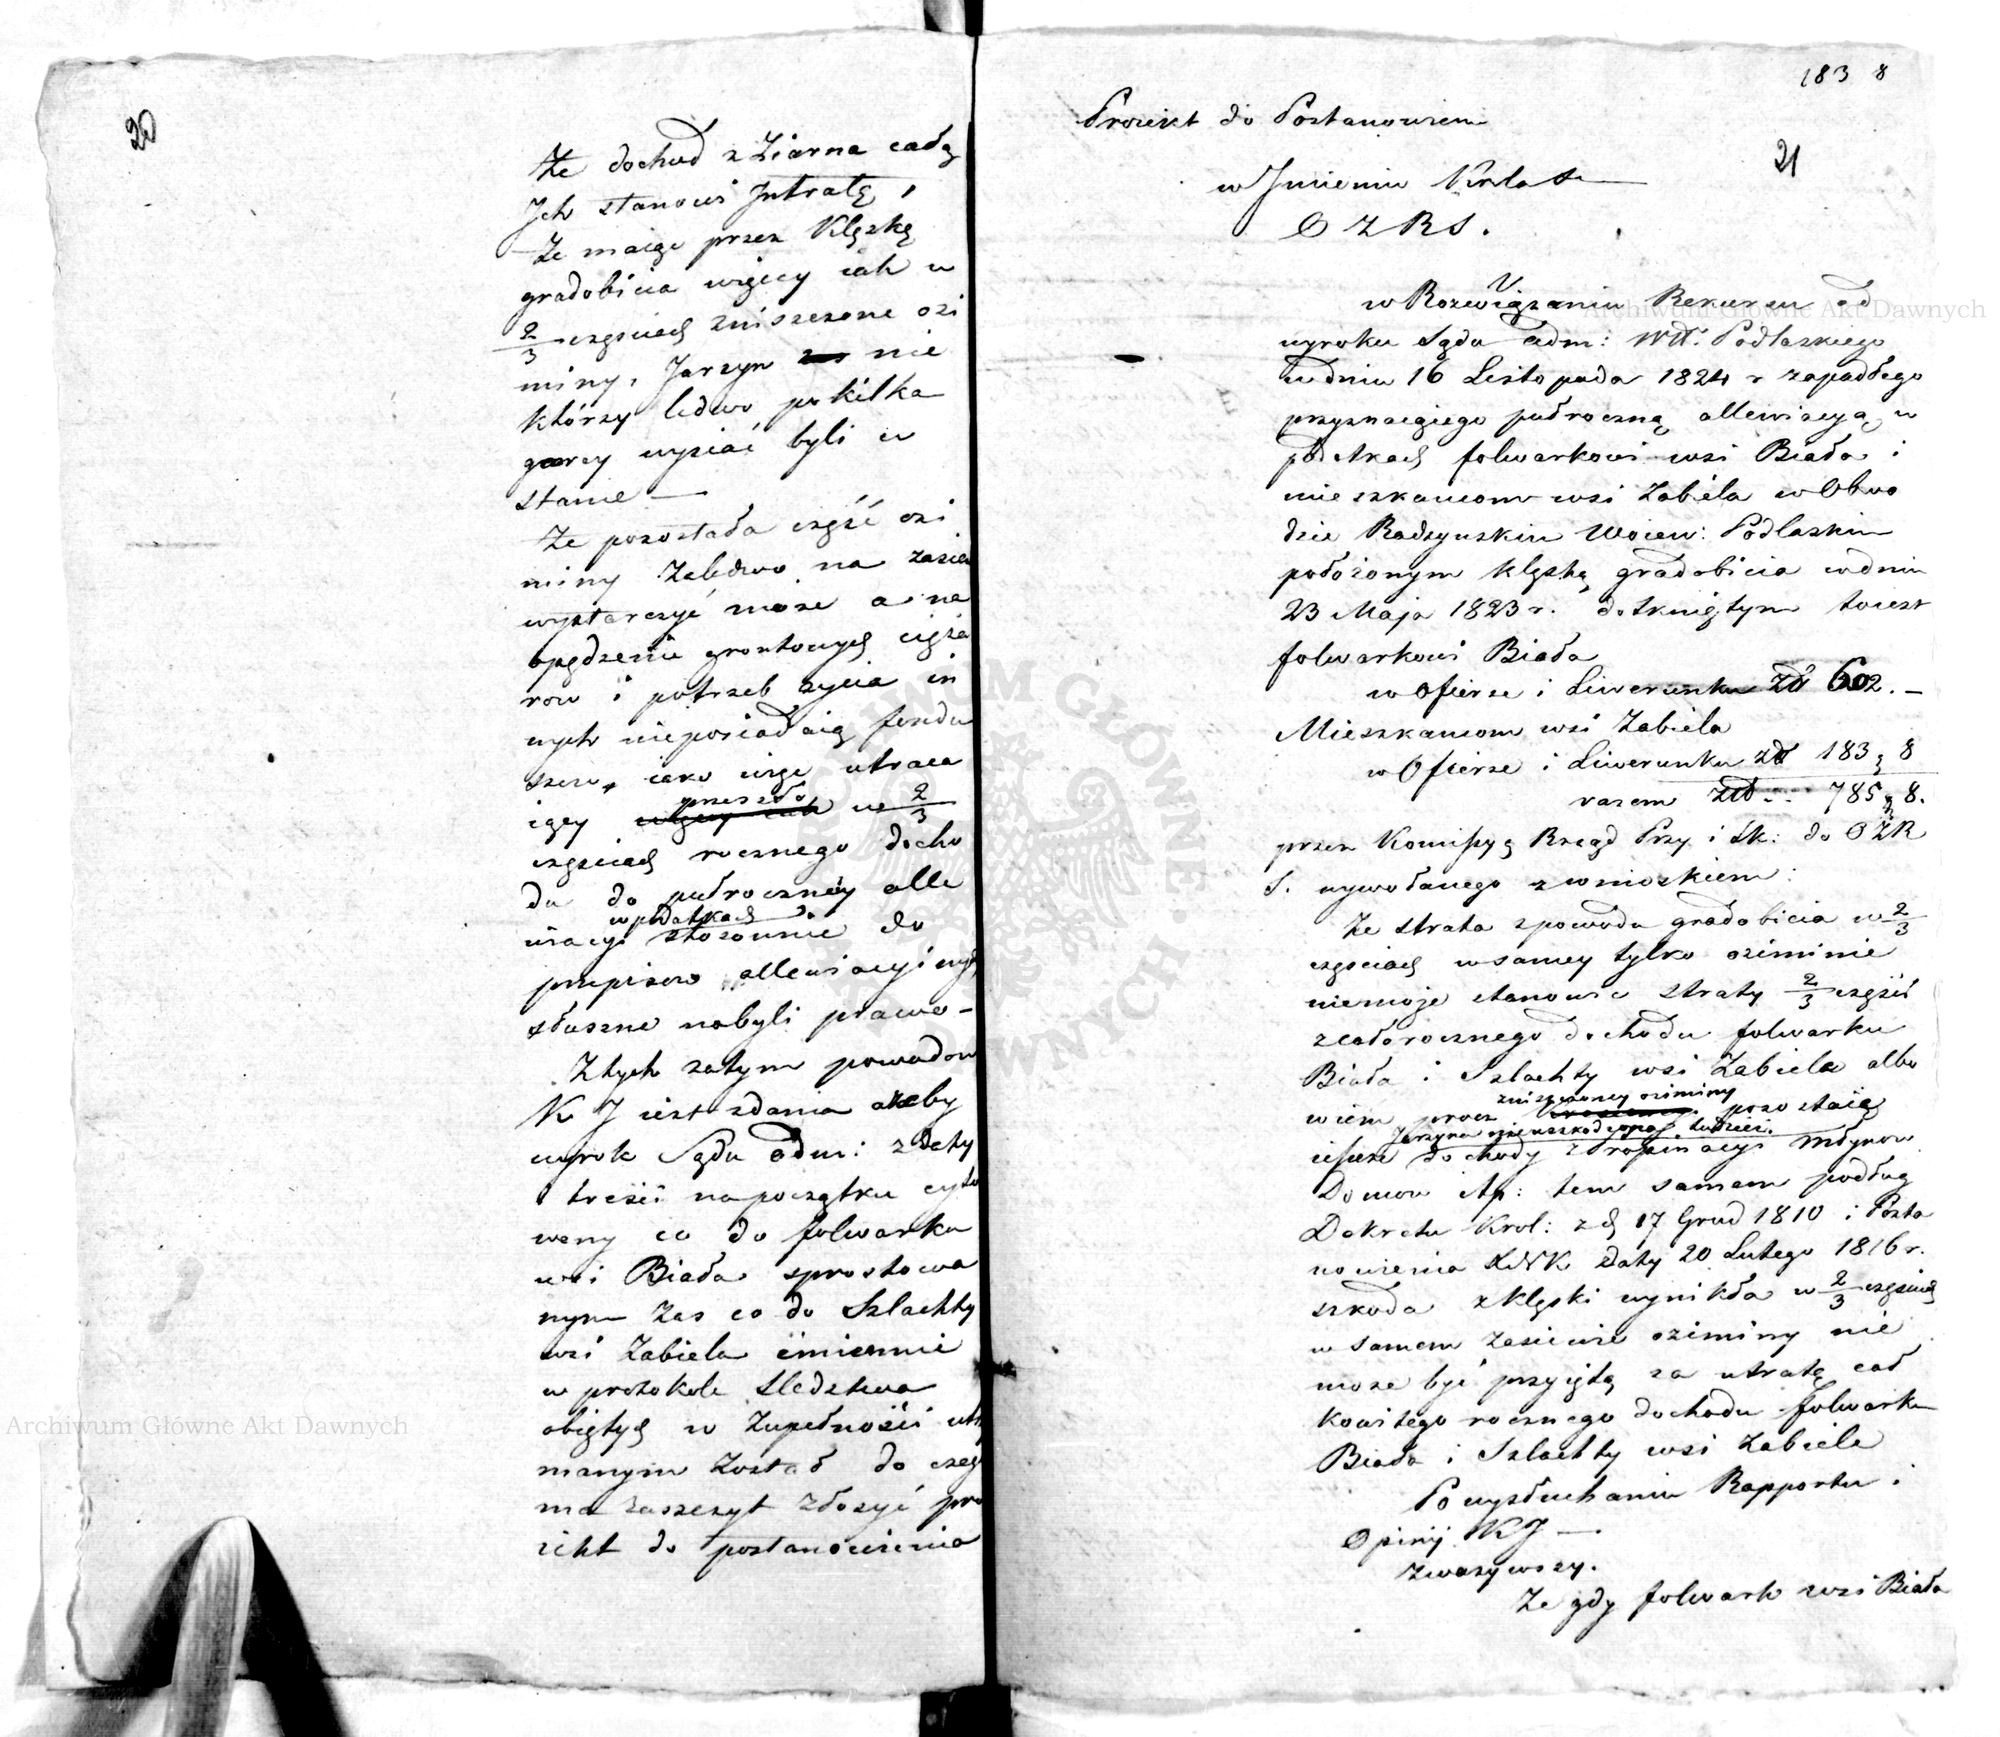 20
Że dochod z Ziarna całą
Ich stanowi Jntratę,
Że maiąc przez Klęskę
gradobicia więcey iak w
2/3 częściach zniszczone ozi
miny, Jarzyn zas nie
którzy ledwo po kilka
garcy wysiać byli w
stanie —
Że pozostała część ozi
miny Zaledwo na zasiew
wystarczyć może a na
opędzenie grontowych cięża
row i potrzeb życia in
nych nieposiadaią fundu
szu, iako więc utraca
iący przeszło w 2/3
częściach rocznego docho
du do pułroczney alle
wiacyi w podatkach stosownie do
przepisow allewiacyinych
słuszne nabyli prawo –
Z tych zatym powodow
K J iest zdania ażeby
wyrok Sądu Adm: z daty
i treści na początku cyto
wany co do folwarku
wsi Biała sprostowa
nym Zas co do Szlachty
wsi Zabiela imiennie
w protokole Sledztwa
obiętych w Zupełności utrzy
manym Został do czego
ma zaszczyt złożyć pro
iekt do postanowienia
183 8
Proiekt do Postanowieni
21
w Jmieniu Krola
O Z R S.
w Rozwiązaniu Rekursu od
wyroku Sądu Adm: Wtt: Podlaskiego
w dniu 16 Listopada 1824 r zapadłego
przyznaiącego pułroczną allewiacyą w
podatkach folwarkowi wsi Biała i
mieszkancom wsi Zabiela w Obwo
dzie Radzynskim Woiew: Podlaskim
położonym klęską gradobicia w dniu
23 Maja 1823 r. dotkniętym to iest
folwarkowi Biała
w Ofierze i Liwerunku Zł 602. –
Mieszkancom wsi Zabiela
w Ofierze i Liwerunku zł 183 g 8
razem Złł .. 785 g 8.
przez Komissyą Rząd Przy i Sk: do O Z R
S. wywołanego z wnioskiem:
Że strata z powodu gradobicia w 2/3
częściach w samey tylko oziminie
niemoże stanowic straty 2/3 części
z całorocznego dochodu folwarku
Biała i Szlachty wsi Zabiela albo
wiem procz zniszczoney oziminy pozostaią
Jarzyna nieuszkodzona, tudzież
ieszcze dochody z Propinacyi Młynow
Domow itp: tem samem podług
Dekretu Krol: z d 17 Grud 1810 i Posta
nowienia X N K Daty 20 Lutego 1816 r.
szkoda z Klęski wynikła w 2/3 częściach
w samem Zasiewie oziminy nie
może być przyiętą za utratę cał
kowitego rocznego dochodu folwarku
Biała i Szlachty wsi Zabiela
Po wysłuchaniu Rapportu i
Opinij KJ —
Zwazywszy.
Że gdy folwark wsi Biała
Archiwum Główne Akt Dawnych
Archiwum Główne Akt Dawnych
ARCHIWUM GŁÓWNE AKT DAWNYCH